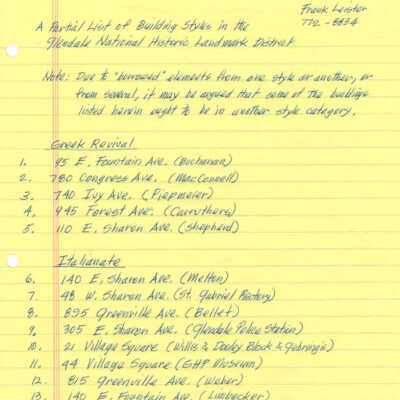 Frank Leister
772-8834
A Partial List of Building Styles in the
Glendale National Historic Landmark District
Note: Due to "borrowed" elements from one style or another, or
from several, it may be argued that some of the buildings
listed herein ought to be in another style category.
Greek Revival
1. 95 E. Fountain Ave. (Buchanan)
2. 780 Congress Ave. (MacConnell)
3. 740 Ivy Ave. (Piepmeier)
4. 945 Forest Ave. (Carruthers)
5. 110 E. Sharon Ave. (Shepherd)
Italianate
6. 140 E. Sharon Ave. (Melton)
7. 48 W. Sharon Ave. (St. Gabriel Rectory)
8. 895 Greenville Ave. (Bellet)
9. 305 E. Sharon Ave. (Glendale Police Station)
10. 21 Village Square (Willis & Dooley Block &
11. 44 Village Square (GHP Museum)
12. 815 Greenville Ave. (Weber)
13. 140 E. Fountain Ave. (Limbecker)